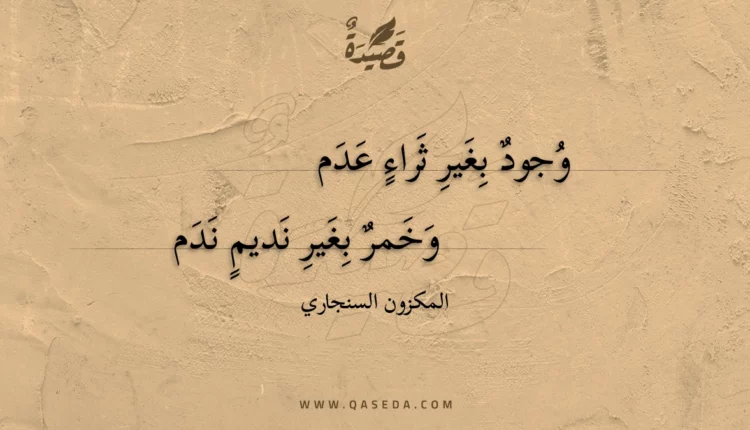 قَصِيْدَةٌ
وُجودٌ بِغَيرِ ثَراءٍ عَدَم
وَخَمرٌ بِغَيرِ نَديمٍ نَدَم
المكزون السنجاري
WWW.QASEDA.COM